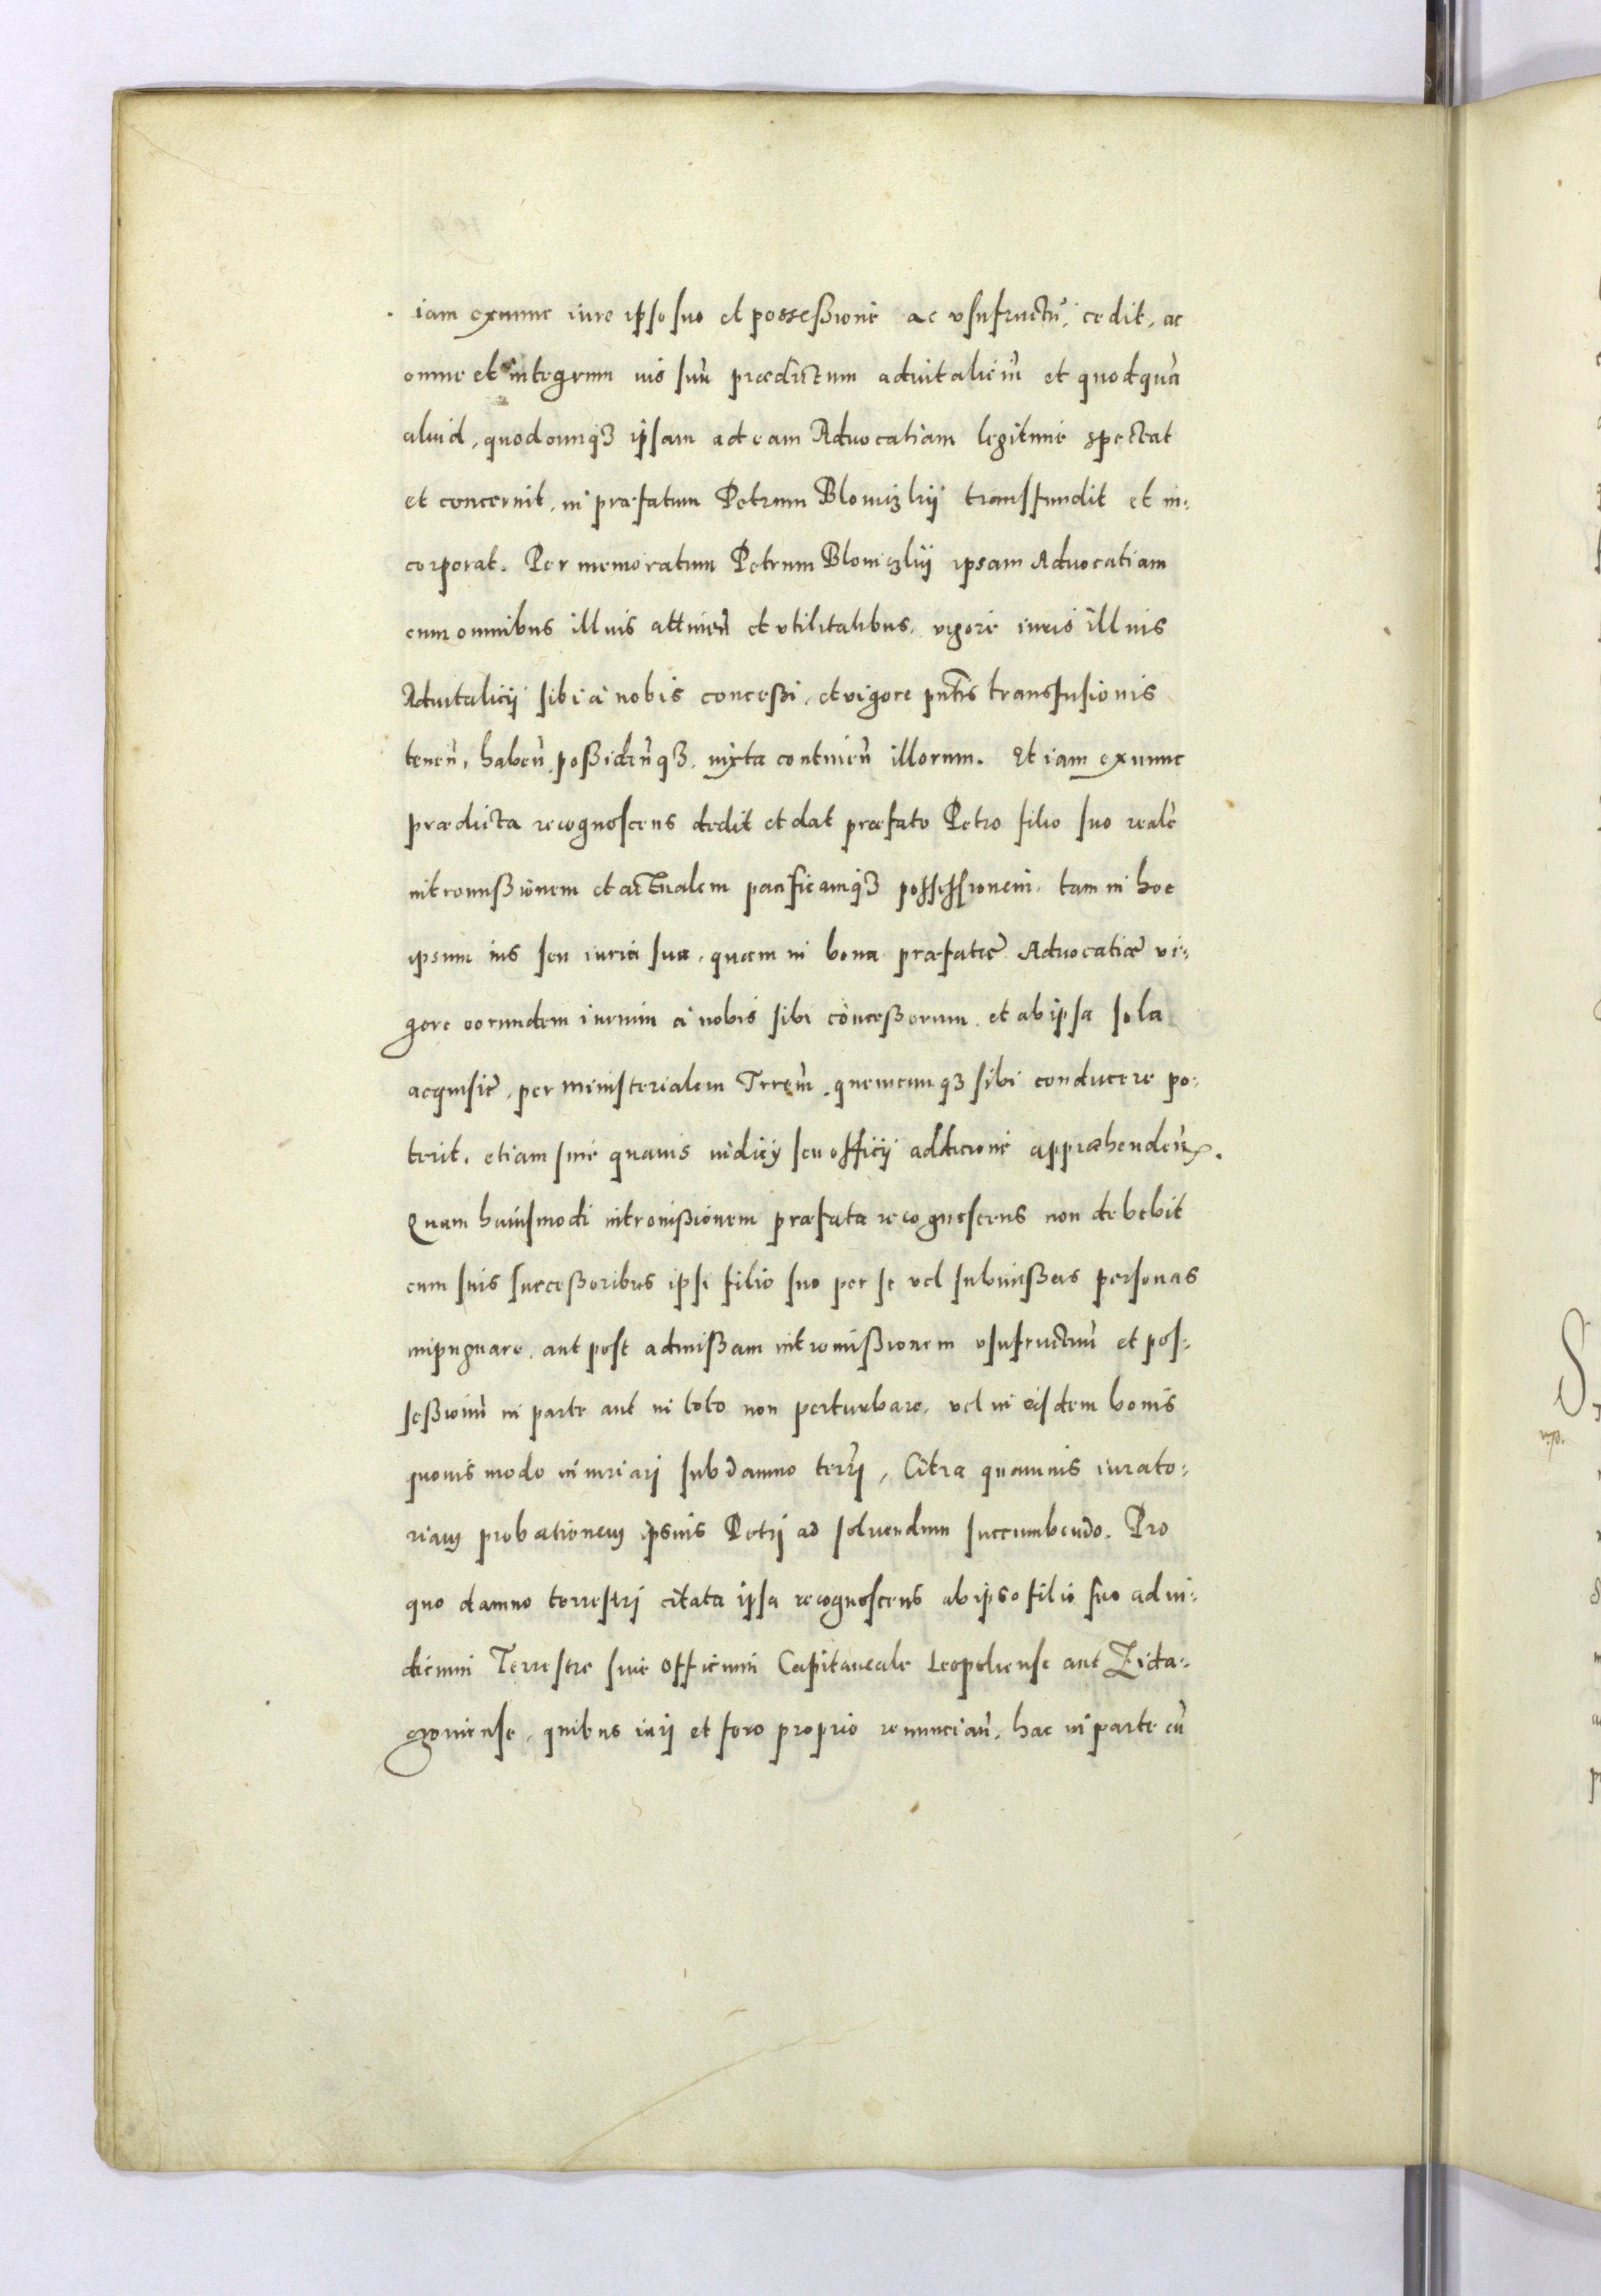 iam exnunc iure ipso suo et possessione ac vsufructũ, cedit, ac
omne et integrum ius suũ prædictum aduitaliciũ et quodquã
aliud, quodcunqȝ ipsam ad eam Aduocatiam legitime spectat
et concernit, in præfatum Petrum Blowiȝkij transfundit et in:
corporat. Per memoratum Petrum Bloniȝkij ipsam Aduocatiam
cum omnibus illius attineñ et vtilitatibus, vigore iuris illius
Aduitalicij sibi à nobis concessi, et vigore pñtis transfusionis
teneñ, habeñ possideñqȝ, iuxta contineñ illorum. Et iam exnunc
prædicta recognoscens dedit et dat præfato Petro filio suo realẽ
intromissionem et actualem pacificamqȝ possessionem, tam in hoc
ipsum ius seu iura sua, quam in bona præfatæ Aduocatiæ vi:
gore eorundem iurium à nobis sibi concessorum, et ab ipsa sola
acquisit, per ministerialem Trrem̃, quemcunqȝ sibi conducere po:
terit, etiam sine quauis iudicij seu officij additione appræhendeñ.
Quam huiusmodi intromissionem præfata recognoscens non debebit
cum suis successoribus ipsi filio suo per se vel submissas personas
impugnare, aut post admissam intromissionem vsufructuũ et pos:
sessionũ in parte aut in toto non perturbare, vel in eisdem bonis
quouis modo iniuriari sub damno terrri, Citra quamuis iurato:
riam probationem ipsius Petri ad soluendum succumbendo. Pro
quo damno terrestri citata ipsa recognoscens ab ipso filio suo ad iu:
dicium Terrestre siue officium Capitaneale Leopoliense aut Zida:
czouiense, quibus iuri et foro proprio renunciañ, hac in parte cũ